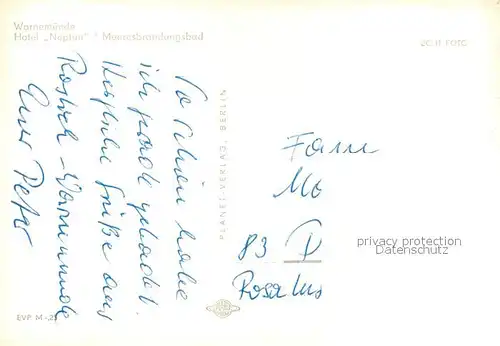 Warnemünde
Hotel „Neptun" * Meeresbrandungsbad
ECHT FOTO
So schön habe
ich gerade gebadet.
Herzliche Grüße aus
Rostock-Warnemünde
Euer Peter
PLANET-VERLAG, BERLIN
Fam
Mo
83 P
Rosa Lus
privacy protection
Datenschutz
EVP M -,25